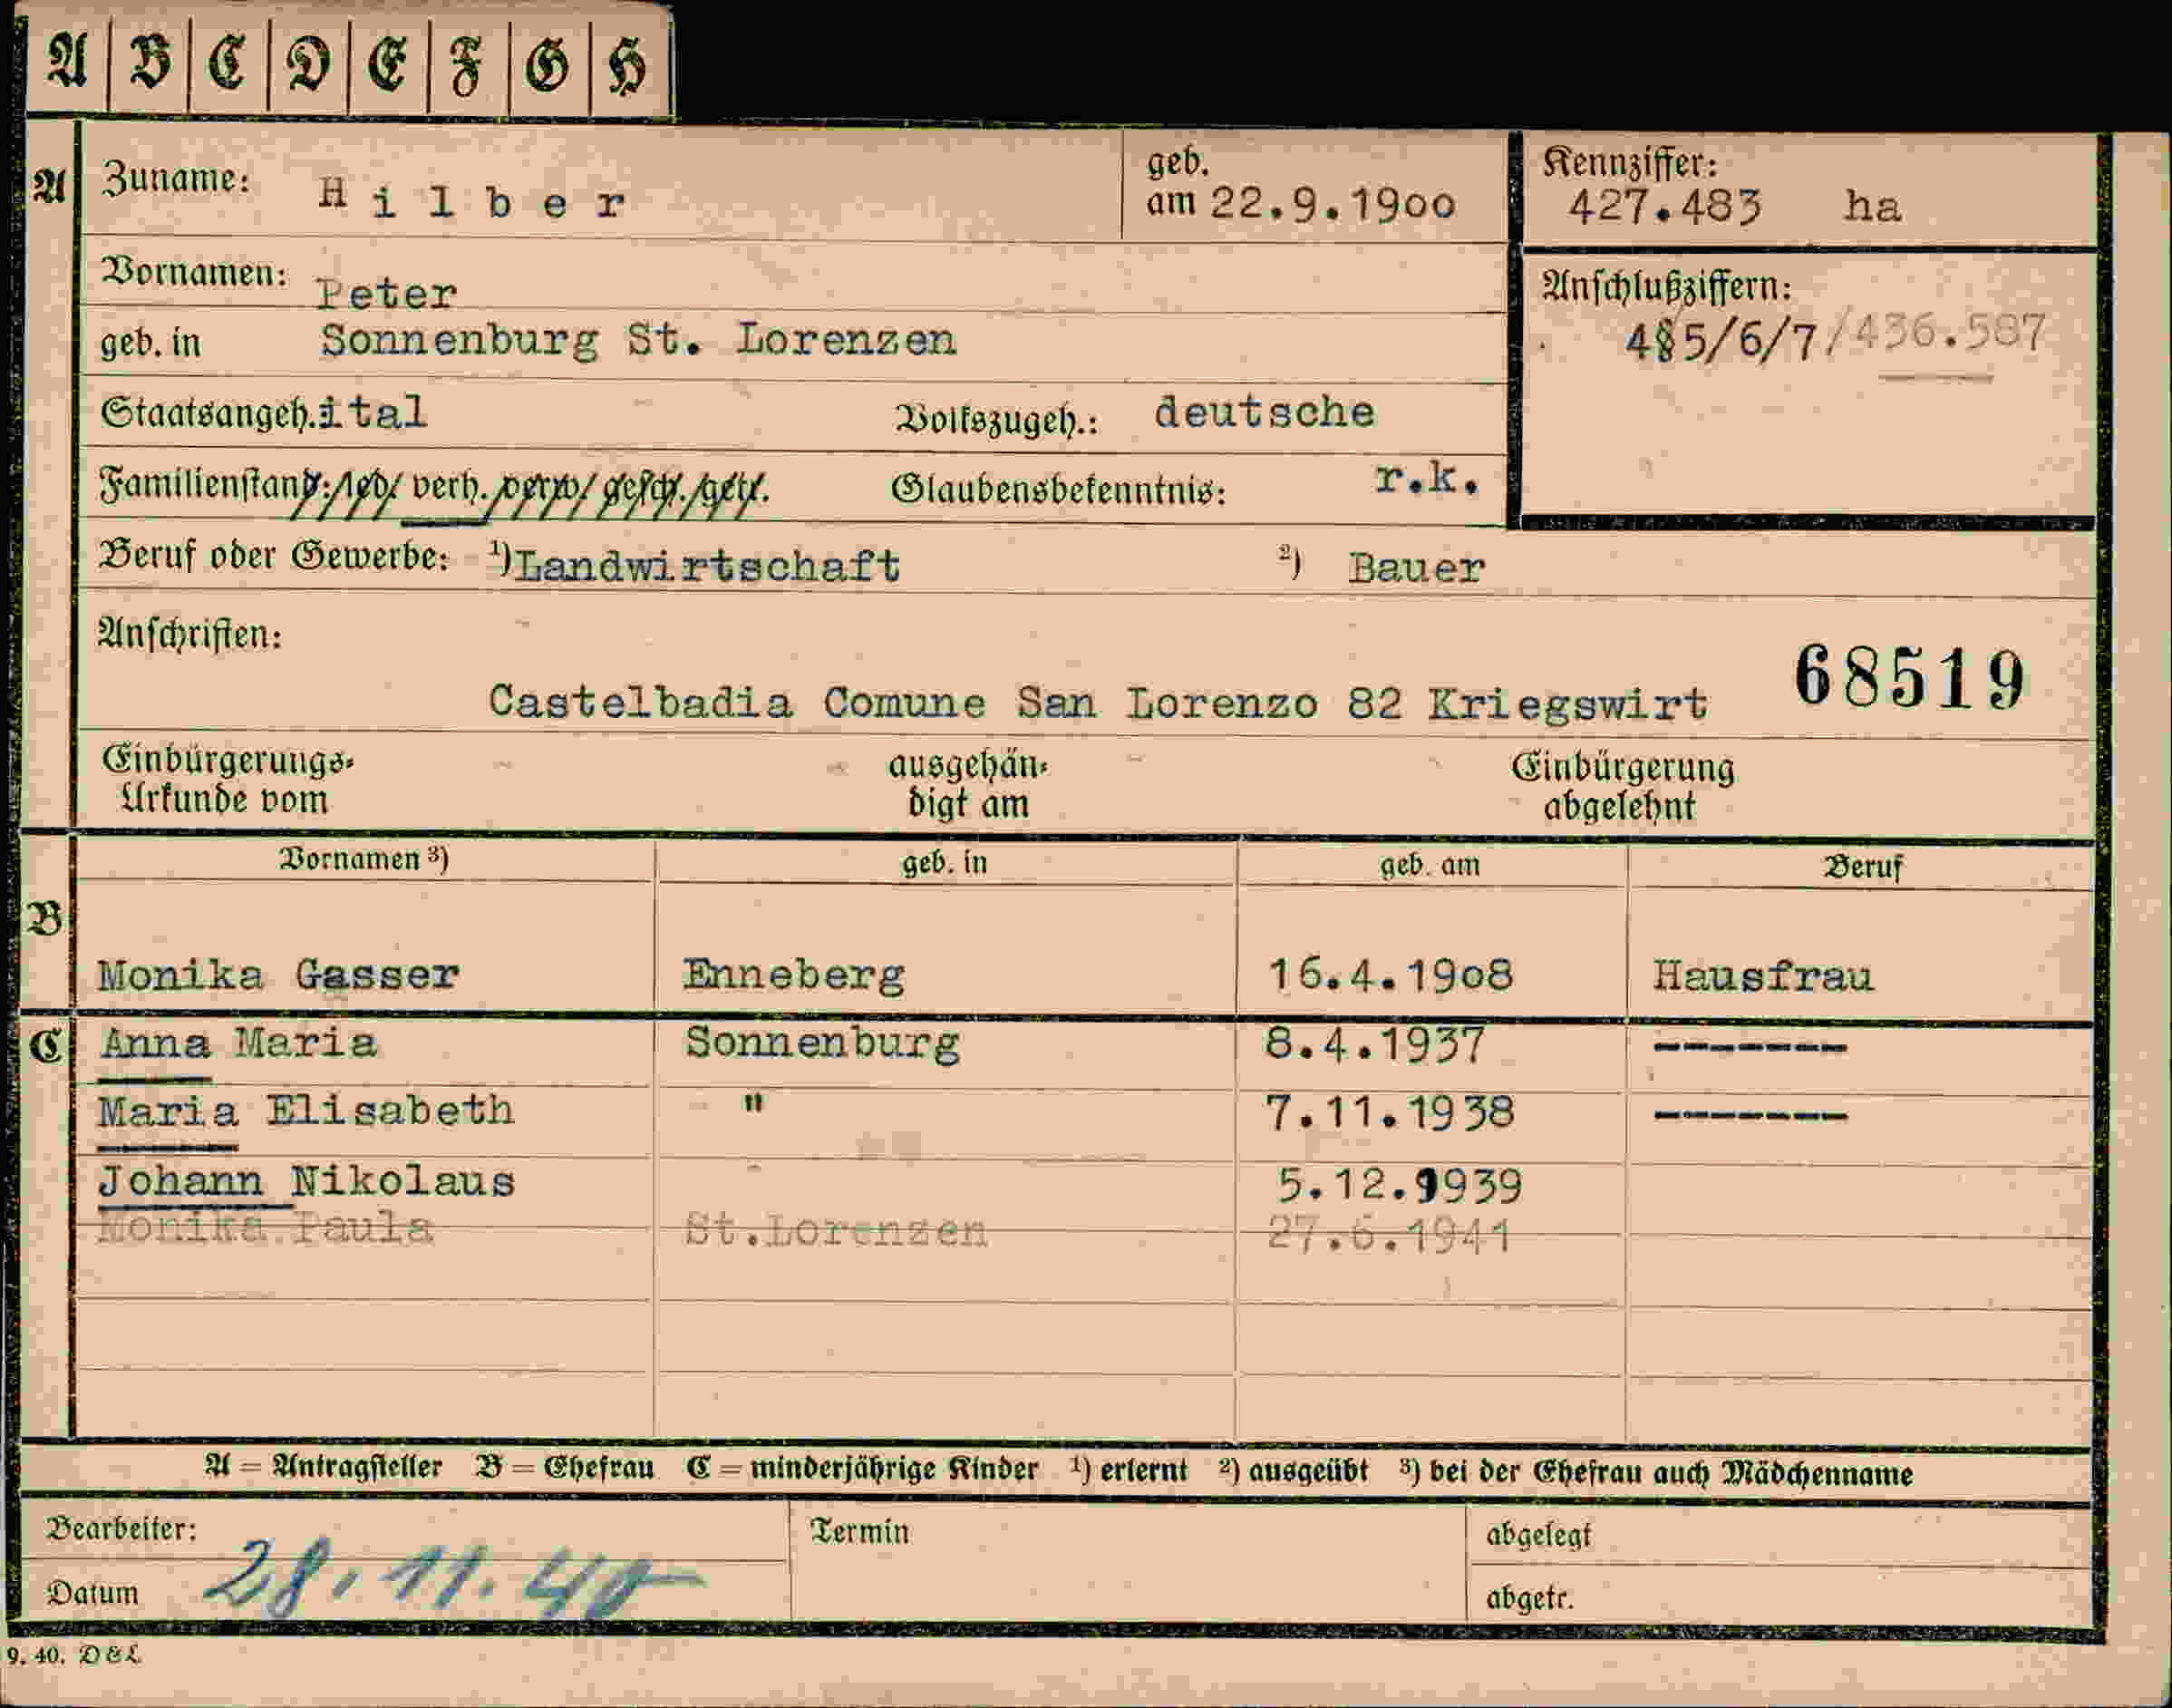 A B C D E F G H
A Zuname: Hilber geb. am 22.9.1900 Kennziffer: 427.483 ha
Vornamen: Peter Anschlußziffern:
geb. in Sonnenburg St. Lorenzen 4§5/6/7/436.587
Staatsangeh. ital Volkszugeh.: deutsche
Familienstand: led. verh. verw. gesch. getr. Glaubensbekenntnis: r.k.
Beruf oder Gewerbe: ¹) Landwirtschaft ²) Bauer
Anschriften:
Castelbadia Comune San Lorenzo 82 Kriegswirt 68519
Einbürgerungs- ausgehän- Einbürgerung
Urkunde vom digt am abgelehnt
Vornamen ³) geb. in geb. am Beruf
B
Monika Gasser Enneberg 16.4.1908 Hausfrau
C Anna Maria Sonnenburg 8.4.1937 -------
Maria Elisabeth " 7.11.1938 -------
Johann Nikolaus 5.12.1939
Monika Paula St.Lorenzen 27.6.1941
A = Antragsteller B = Ehefrau C = minderjährige Kinder ¹) erlernt ²) ausgeübt ³) bei der Ehefrau auch Mädchenname
Bearbeiter: Termin abgelegt
Datum 28.11.40 abgetr.
9. 40. D & L